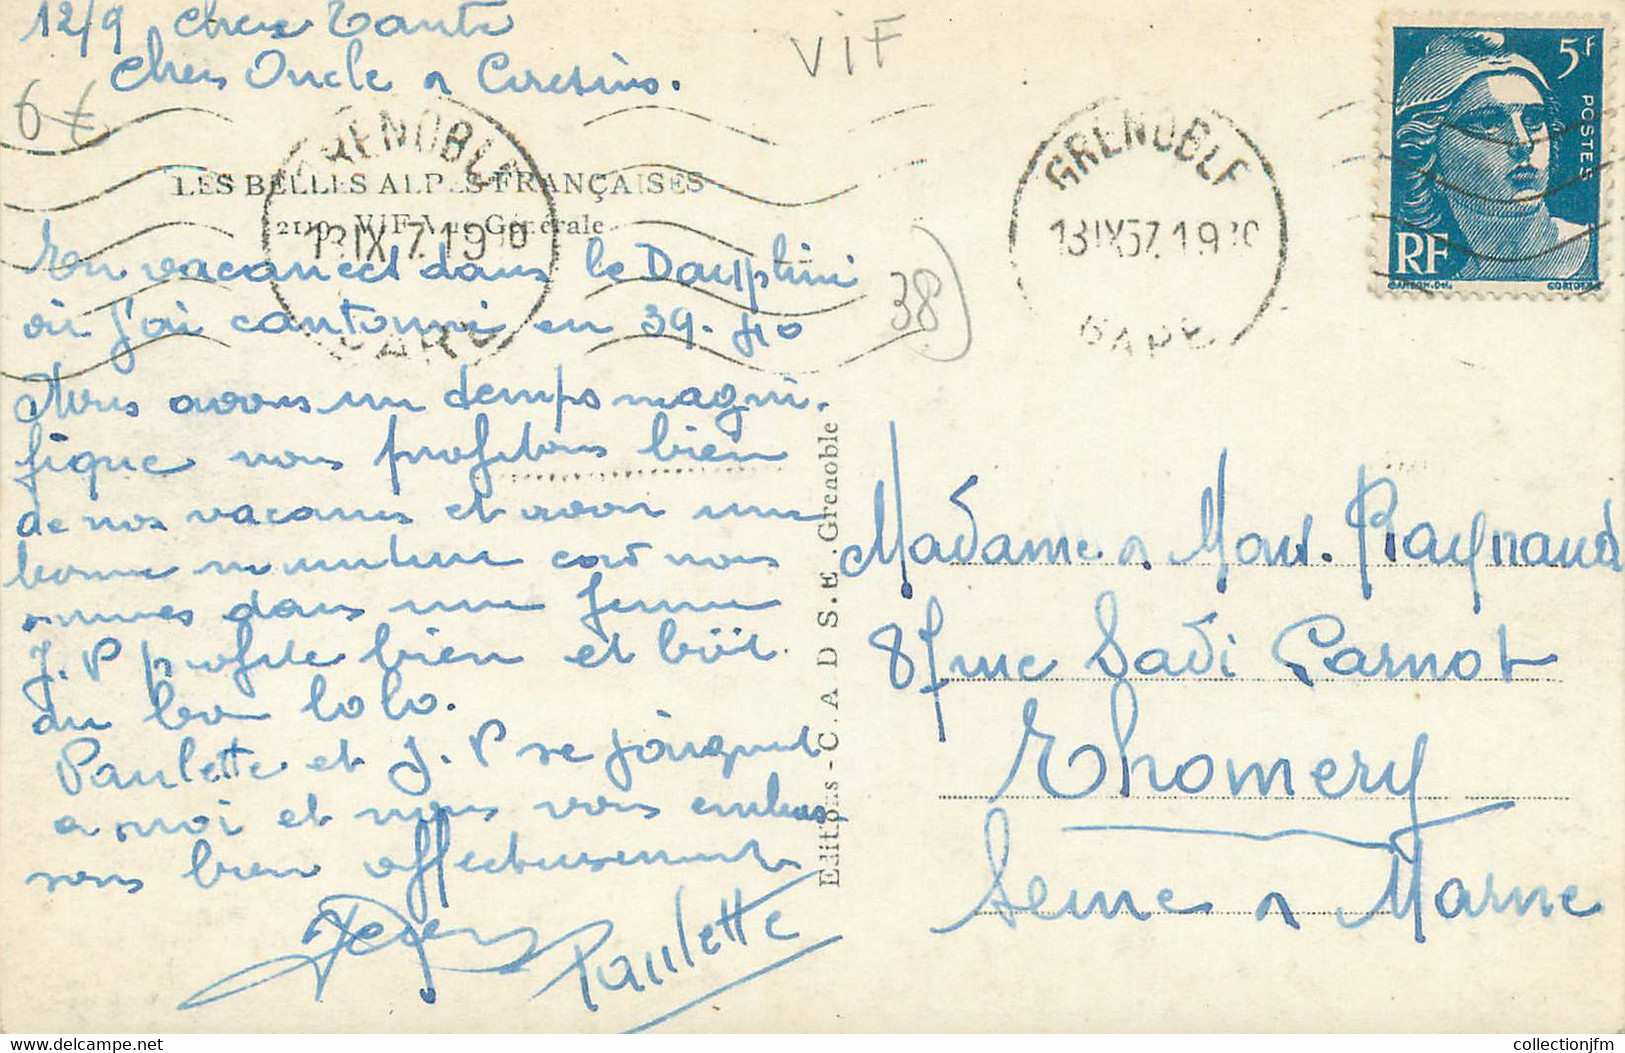 12/9 Chere Tante
Cher Oncle & Cousins.
6€
VIF
LES BELLES ALPES FRANÇAISES
2110 VIF Vue Générale
GRENOBLE
GARE
En vacances dans le Dauphiné
où j'ai cantonné en 39-40
Nous avons un temps magni-
fique nous profitons bien
de nos vacances et avon une
bonne nourriture car nous
sommes dans une ferme
J. P profite bien et boit
du bon lolo.
Paulette et J. P se joignent
a moi et nous vous embras
sons bien affectueusement
Paulette
Editions - C. A. D S. E. Grenoble
38
GRENOBLE
13 IX 57 19 30
GARE
5F
POSTES
RF
GANDON DEL.
CORTOT SC.
Madame & Mons. Raynaud
87 rue Sadi Carnot
Thomery
Seine & Marne
collectionjfm